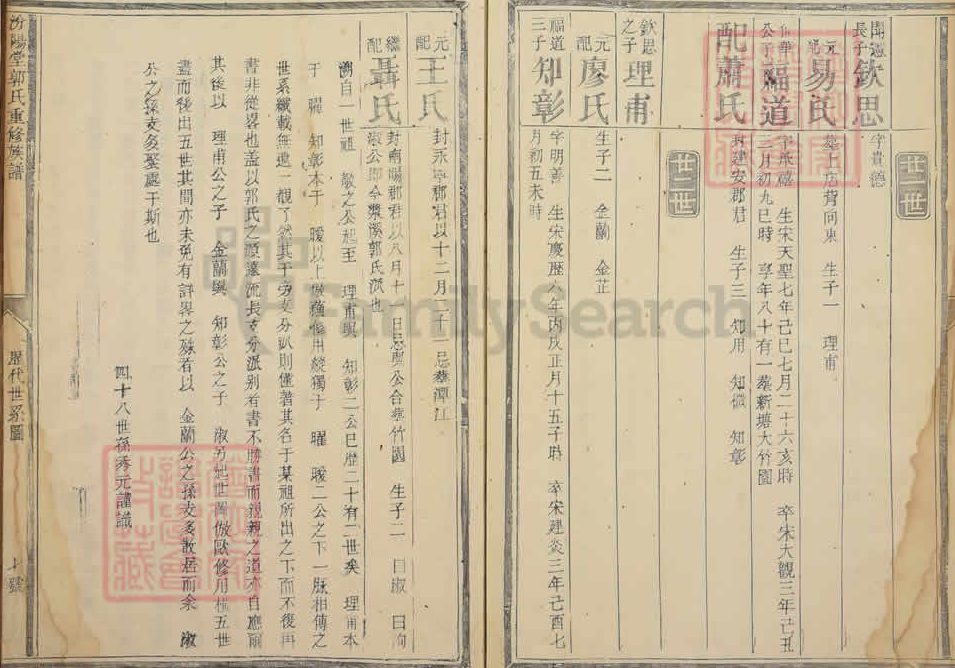 廿一世
聞遠長子 欽思 字貴德
元配 易氏 墓上店背向東 生子一 理甫
公子 福道 字承禧 生宋天聖七年己巳七月二十六亥時 卒宋大觀三年己丑
二月初九巳時 享年八十有一 墓新塘大竹園
配蕭氏 封建安郡君 生子三 知用 知微 知彰
廿二世
欽思之子 理甫
元配 廖氏 生子二 金蘭 金芷
福道三子 知彰 字明善 生宋慶歷八年丙戌正月十五子時 卒宋建炎三年己酉七
月初五未時
元配 王氏 封永寧郡君以十二月二十一忌葬潭江
繼配 聶氏 封南陽郡君以八月十一日忌與公合葬竹園 生子二 曰淑 曰洵
淑公即今漿溪郭氏派也
溯自一世祖 敬之公起至 理甫與 知彰二公已歷二十有二世矣 理甫本
于 曜 知彰本于 曖以上倣蘓修用縱獨于 曜 曖二公之下一脉相傳之
世系纖載無遺一覩了然其于旁支分派則僅著其名于某祖所出之下而不復再
書非從畧也盖以郭氏之源遠流長支分派别若書不勝書而親親之道亦自應爾
其後以 理甫公之子 金蘭與 知彰公之子 淑另起世圖倣歐修用橫五世
盡而後出五世其間亦未免有詳畧之殊者以 金蘭公之孫支多散居而余 淑
公之孫支多聚處于斯也
四十八世孫秀元謹識
汾陽堂郭氏重修族譜
歷代世系圖
七號
FamilySearch